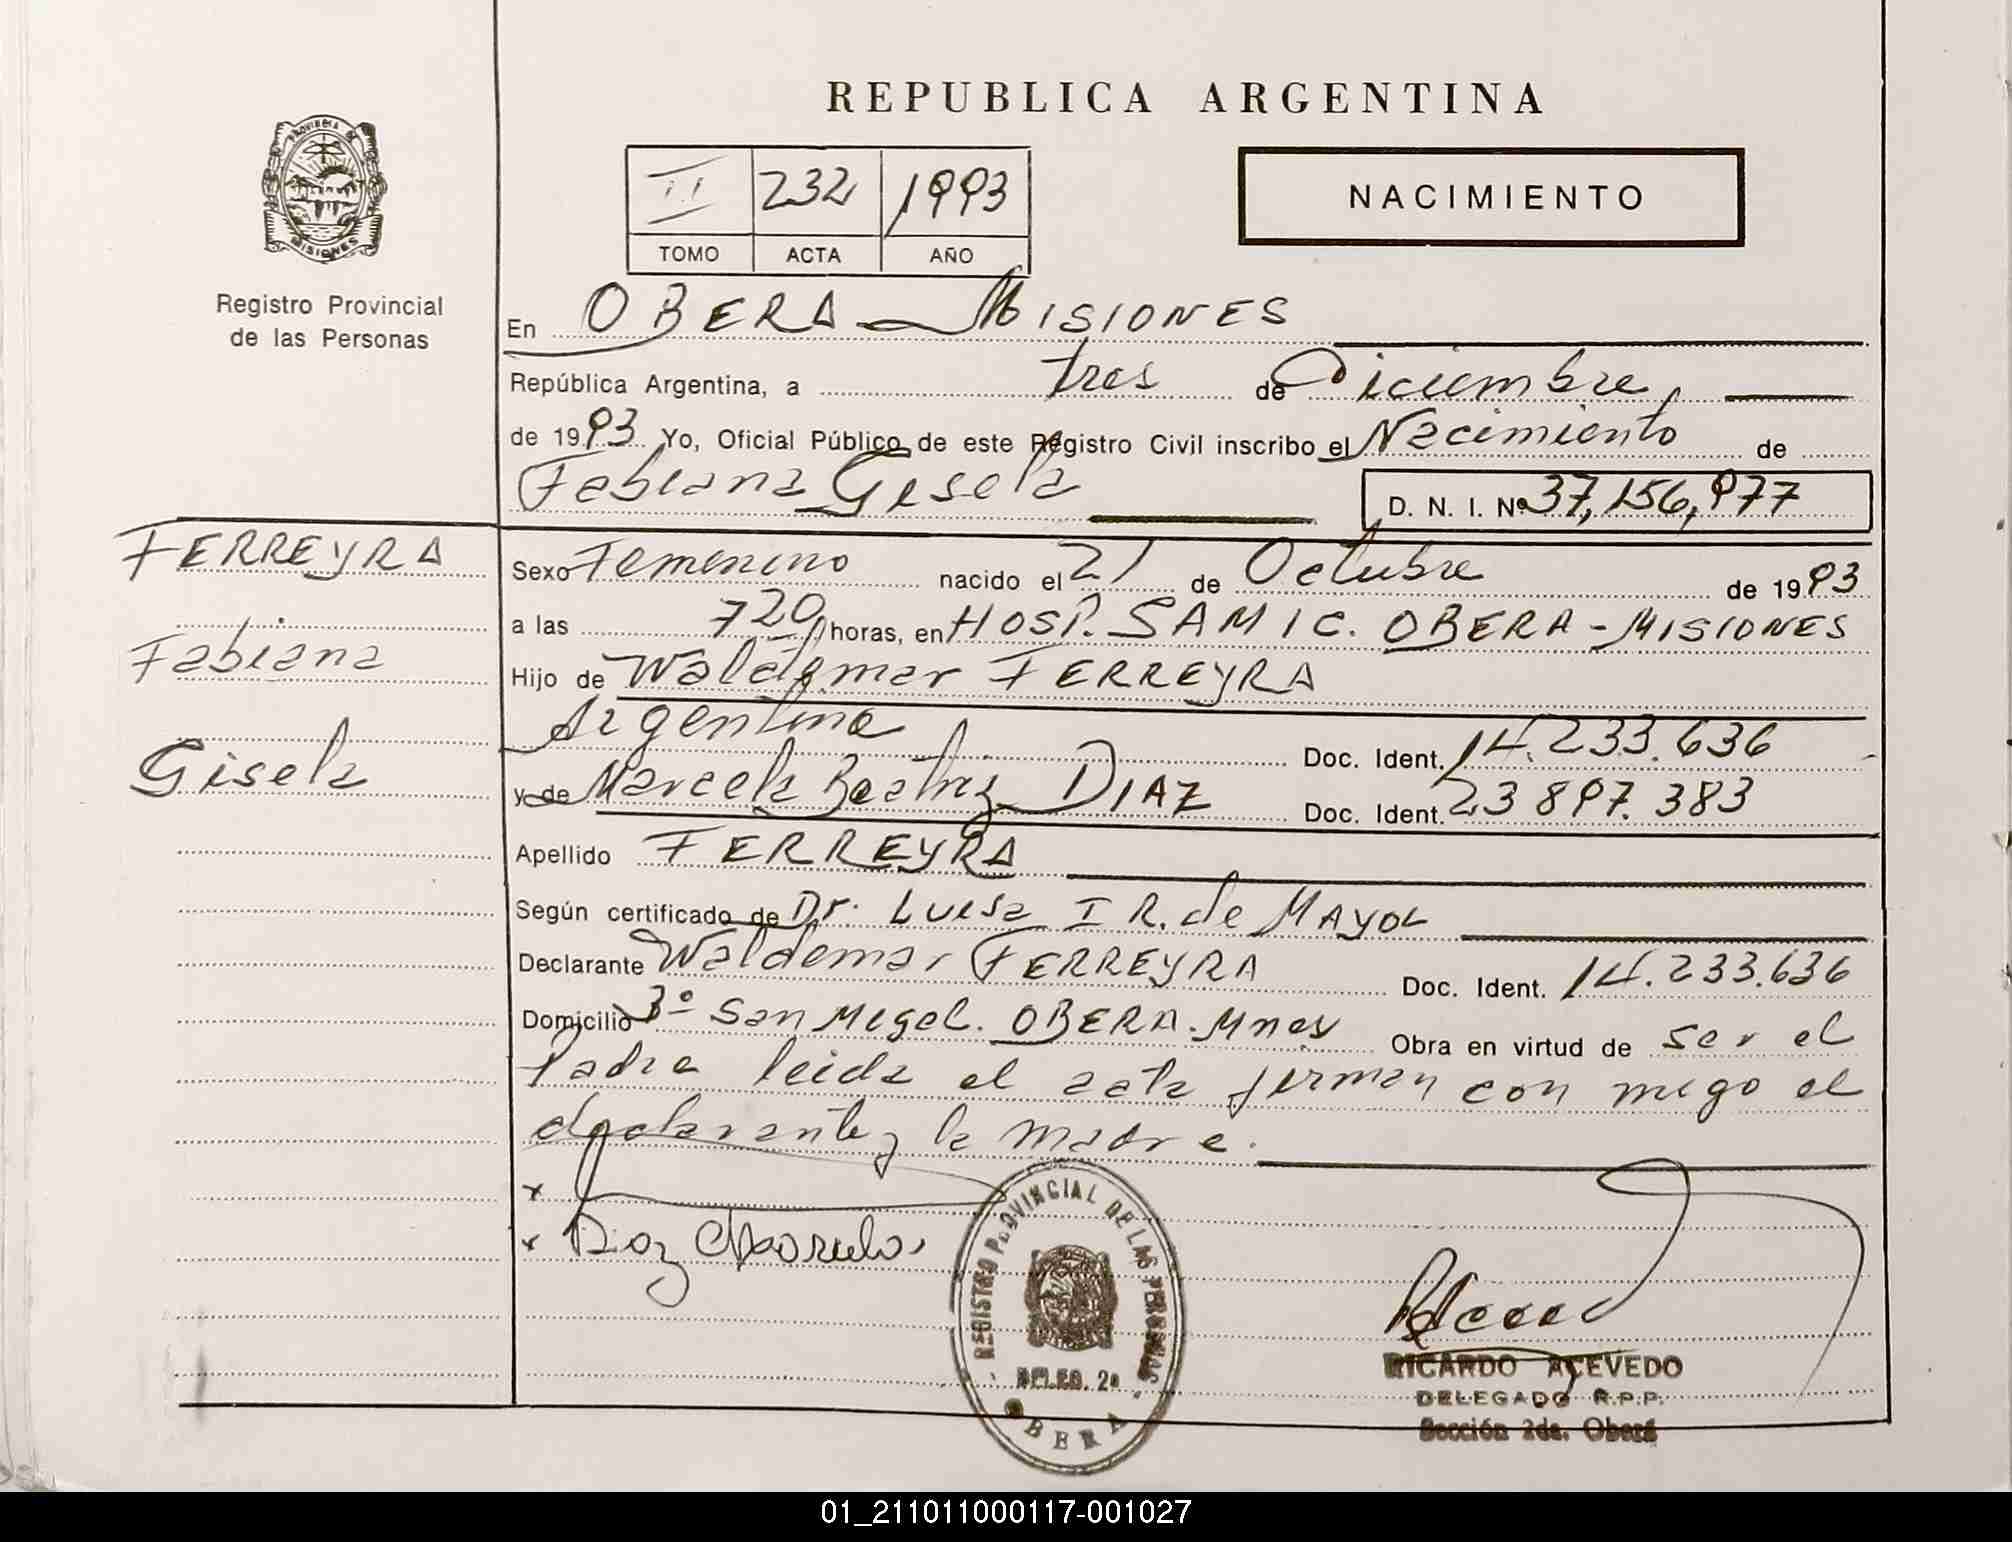 REPUBLICA ARGENTINA
PROVINCIA DE
MISIONES
Registro Provincial
de las Personas
II 232 1993
TOMO ACTA AÑO
NACIMIENTO
En OBERA - MISIONES
República Argentina, a tres de Diciembre
de 1993 Yo, Oficial Público de este Registro Civil inscribo el Nacimiento de
Fabiana Gisela D. N. I. Nº 37,156,977
FERREYRA
Fabiana
Gisela
Sexo Femenino nacido el 21 de Octubre de 1993
a las 720 horas, en HOSP. SAMIC. OBERA - MISIONES
Hijo de Waldemar FERREYRA
Argentina Doc. Ident. 14.233.636
y de Marcela Beatriz DIAZ Doc. Ident. 23 897.383
Apellido FERREYRA
Según certificado de Dr. Luisa I R. de MAYOL
Declarante Waldemar FERREYRA Doc. Ident. 14.233.636
Domicilio 3º San Migel. OBERA - Mnes Obra en virtud de ser el
Padre leida el acta firman con migo el
declarante y la madre.
x
x Diaz Marcela
REGISTRO PROVINCIAL DE LAS PERSONAS
DELEG. 2a
OBERA
RICARDO ACEVEDO
DELEGADO R.P.P.
Sección 2da. Oberá
01_211011000117-001027